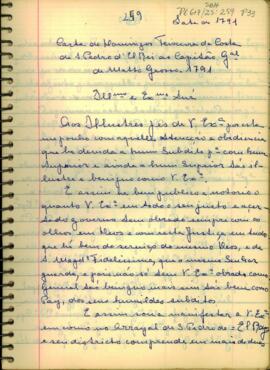 259
Data de 1791
Carta de Domingos Teixeira da Costa
de S. Pedro d'El Rei ao Capitão Gal
de Matto Grosso 1791
Illmo e Exmo Snr
Aos Illustres pés de V. Exa
me ponho com aquella attenção e obediencia
que he devida a hum Subdito pa com hum
Superior e ainda a hum Superior tão il-
lustre e benigno como V. Exa
E assim se bem publico e notorio o
quanto V. Exa em todo o seu justo e acer-
tado governo tem obrado sempre com os
olhos em Deos e com recta Justiça em tudo
que hé bem do serviço do mesmo Deos, e de
S. Magde Fidelissima, que o mesmo Senhor
guarde, e pois não só tem V. Exa obrado como
General tão benigno mais sim tão bem como
Pay, dos seus humildes subditos
E assim só a manifestar a V. Exa
em como no Arrayal de S. Pedro de El Rey
e seu districto comprehende em mais de duas